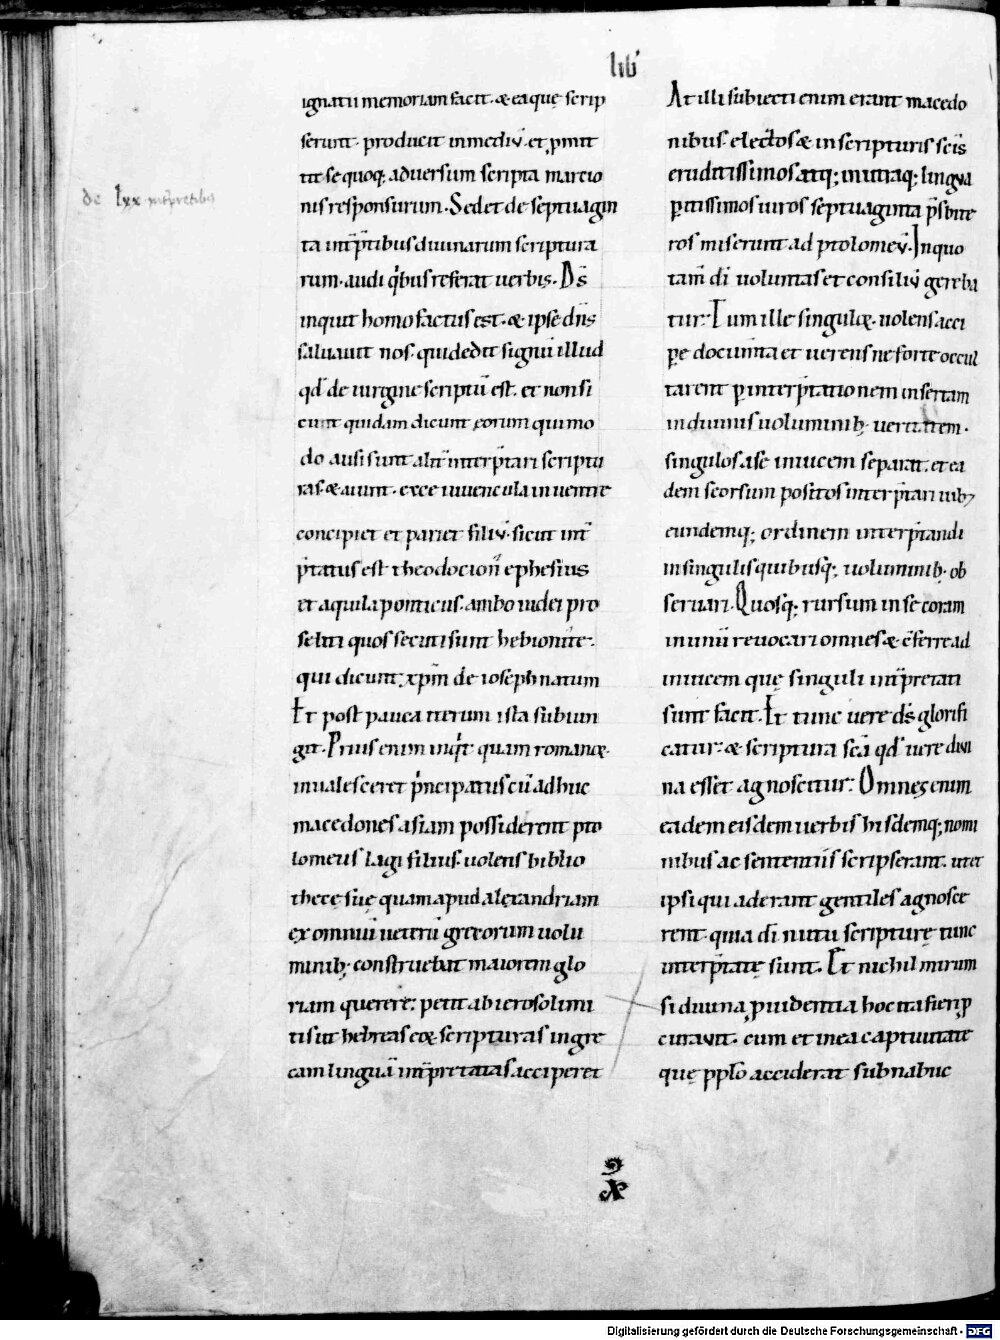 lib'
de lxx int̄pretib;
ignatii memoriam facit. & ea quę scrip
serunt. producit in mediū. et ꝓmit
tit se quoq; adversum scripta marcio
nis responsurum. Sed et de septuagin
ta int̄p̄tibus divinarum scriptura
rum. audi q̍bus referat verbis. D̄s
inquit homo factus est. & ipse dn̄s
salvavit nos. qui dedit signū illud
qd̄ de virgine scriptū est. et non si
cut quidam dicunt eorum qui mo
do ausi sunt alit̄ interp̄tari scriptu
ras. & aiunt. ecce iuvencula in ventre
concipiet et pariet filiū. sicut int̄
p̄tatus est theodocion̄ ephesius
et aquila ponticus. ambo iudei pro
seliti quos secuti sunt hebionitę.
qui dicunt xp̄m de ioseph natum
Et post pauca iterum ista subiun
git. Prius enim inq̍t quam romanę
invalesceret p̍ncipatus cū adhuc
macedones asiam possiderent pto
lomeus lagi filius. volens biblio
thecę suę quam apud alexandriam
ex omniū veterū grecorum volu
minib; construebat maiorem glo
riam querere: petit ab ierosolimi
tis ut hebreas eo& scripturas in gre
cam linguā int̄pretatas acciperet
At illi subiecti enim erant macedo
nibus. electos & in scripturis sc̄is
eruditissimos atq; in utraq; lingva
ꝑitissimos viros septuaginta p̄sbite
ros miserunt ad ptolomeū. In quo
tam̄ di̅ voluntas et consiliū gereba
tur. Tum ille singulę. volens acci
ꝑe documn̄ta et verens ne forte occul
tarent ꝑ interp̄tationem insertam
in divinis voluminib; veritatem.
singulos a se invicem separat. et ea
dem seorsum positos interp̄tari iub&
eundemq; ordinem interp̄tandi
in singulis quibusq; voluminib; ob
servari. Quosq; rursum in se coram
in unū revocari omnes & c̄ferre ad
invicem quę singuli int̄pretati
sunt facit. Et tunc vere d̄s glorifi
catur. & scriptura sc̄a qd̄ vere divi
na esset agnoscitur. Omnes enim
eadem eisdem verbis hisdemq; nomi
nibus ac sententiis scripserant. ut et
ipsi qui aderant gentiles agnosce
rent quia di̅ nutu scripturę tunc
interp̄tatę sunt. Et nichil mirum
si divina ꝓvidentia hoc ita fieri ꝓ
curavit. cum et in ea captivitate
quę pplo̅ acciderat sub nabuc
X